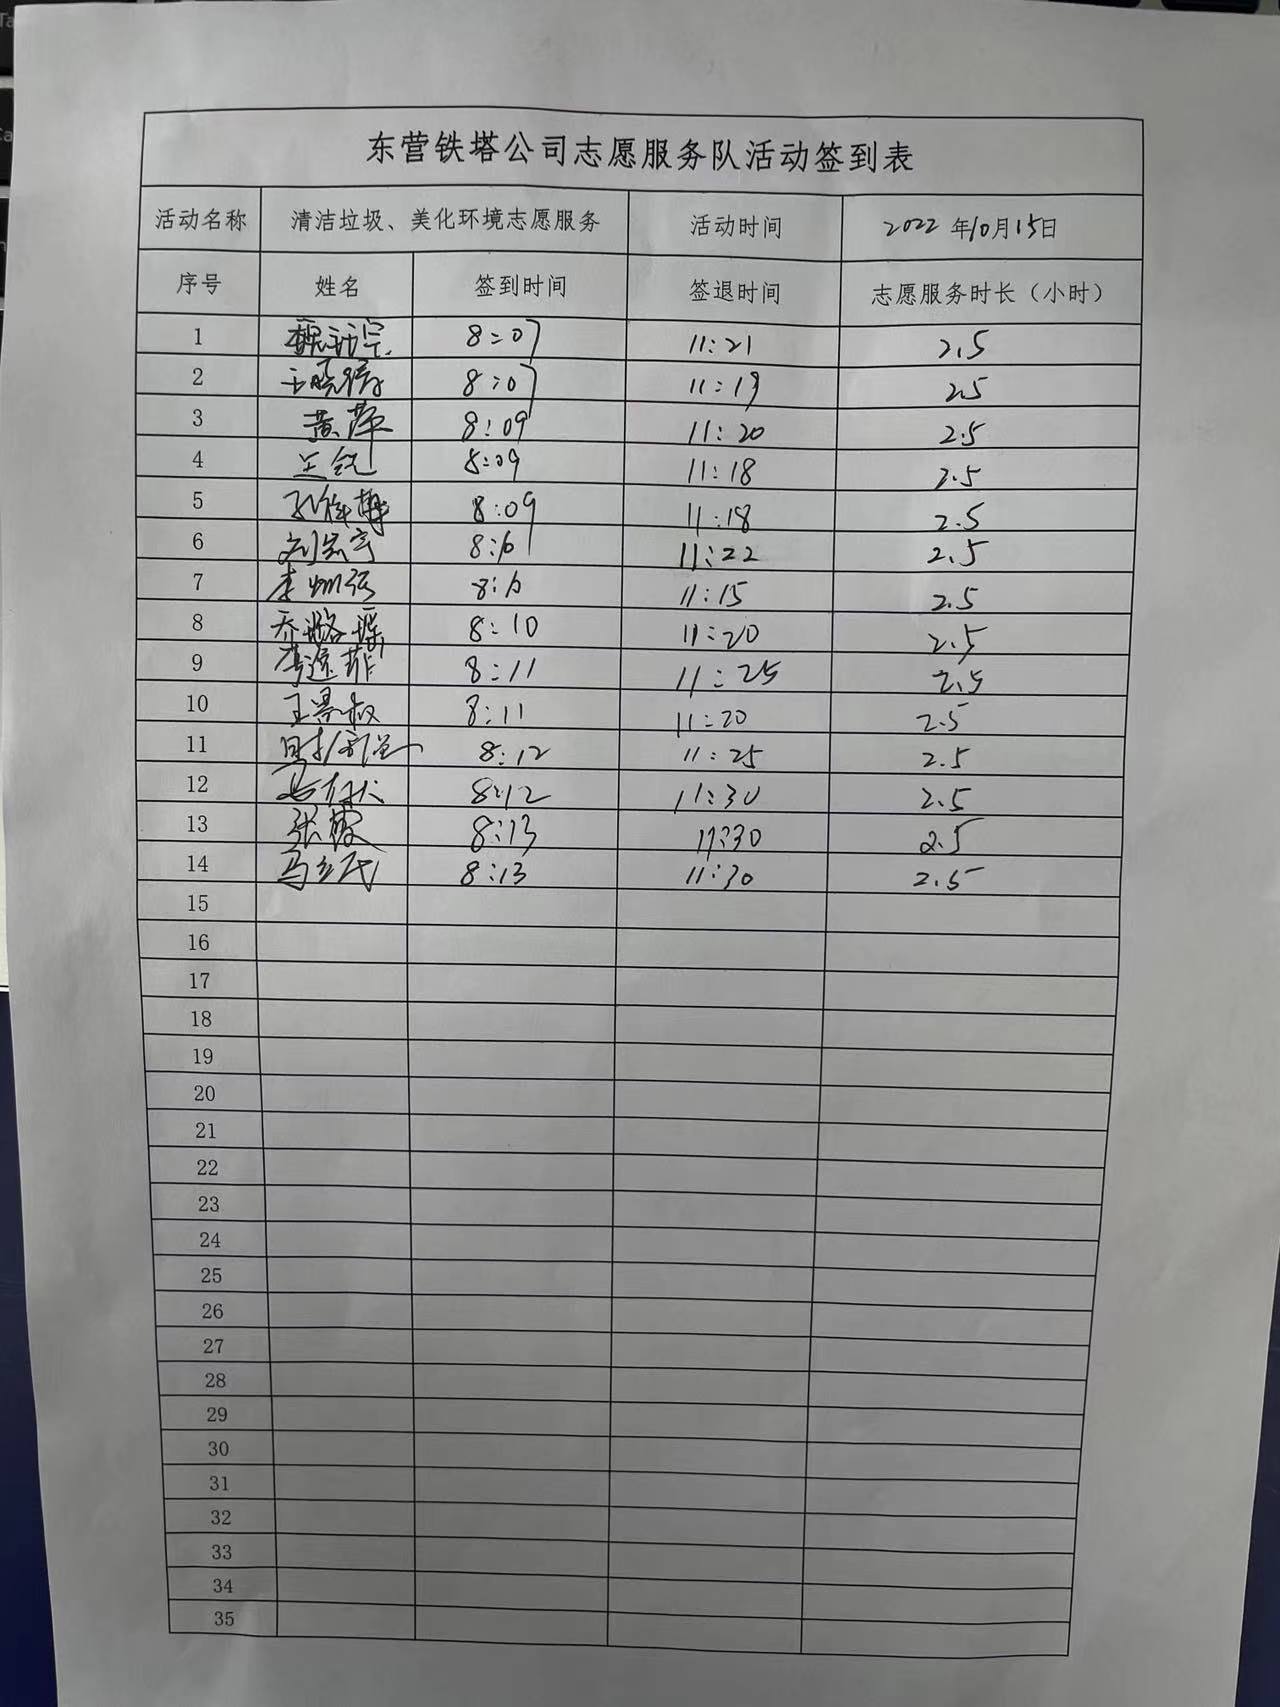 东营铁塔公司志愿服务队活动签到表
活动名称 清洁垃圾、美化环境志愿服务 活动时间 2022年10月15日
序号 姓名 签到时间 签退时间 志愿服务时长（小时）
1 8:07 11:21 2.5
2 8:07 11:19 2.5
3 黄萍 8:09 11:20 2.5
4 王锐 8:09 11:18 2.5
5 8:09 11:18 2.5
6 刘宗宇 8:10 11:22 2.5
7 8:10 11:15 2.5
8 乔璐瑶 8:10 11:20 2.5
9 8:11 11:25 2.5
10 王景叔 8:11 11:20 2.5
11 8:12 11:25 2.5
12 8:12 11:30 2.5
13 张霞 8:13 11:30 2.5
14 8:13 11:30 2.5
15
16
17
18
19
20
21
22
23
24
25
26
27
28
29
30
31
32
33
34
35